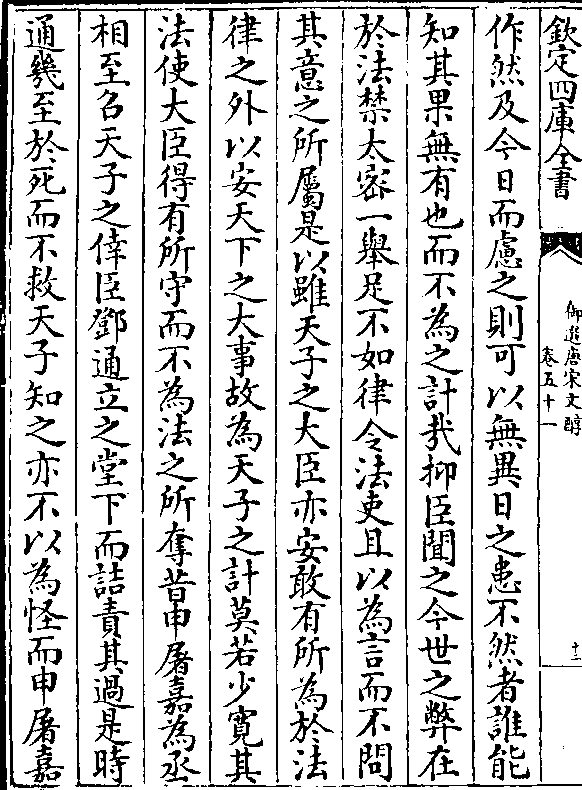 欽定四庫全書
御選唐宋文醇
卷五十一
十二
作然及今日而慮之則可以無異日之患不然者誰能
知其果無有也而不為之計哉抑臣聞之今世之弊在
於法禁太密一舉足不如律令法吏且以為言而不問
其意之所屬是以雖天子之大臣亦安敢有所為於法
律之外以安天下之大事故為天子之計莫若少寛其
法使大臣得有所守而不為法之所奪昔申屠嘉為丞
相至召天子之倖臣鄧通立之堂下而詰責其過是時
通幾至於死而不救天子知之亦不以為怪而申屠嘉